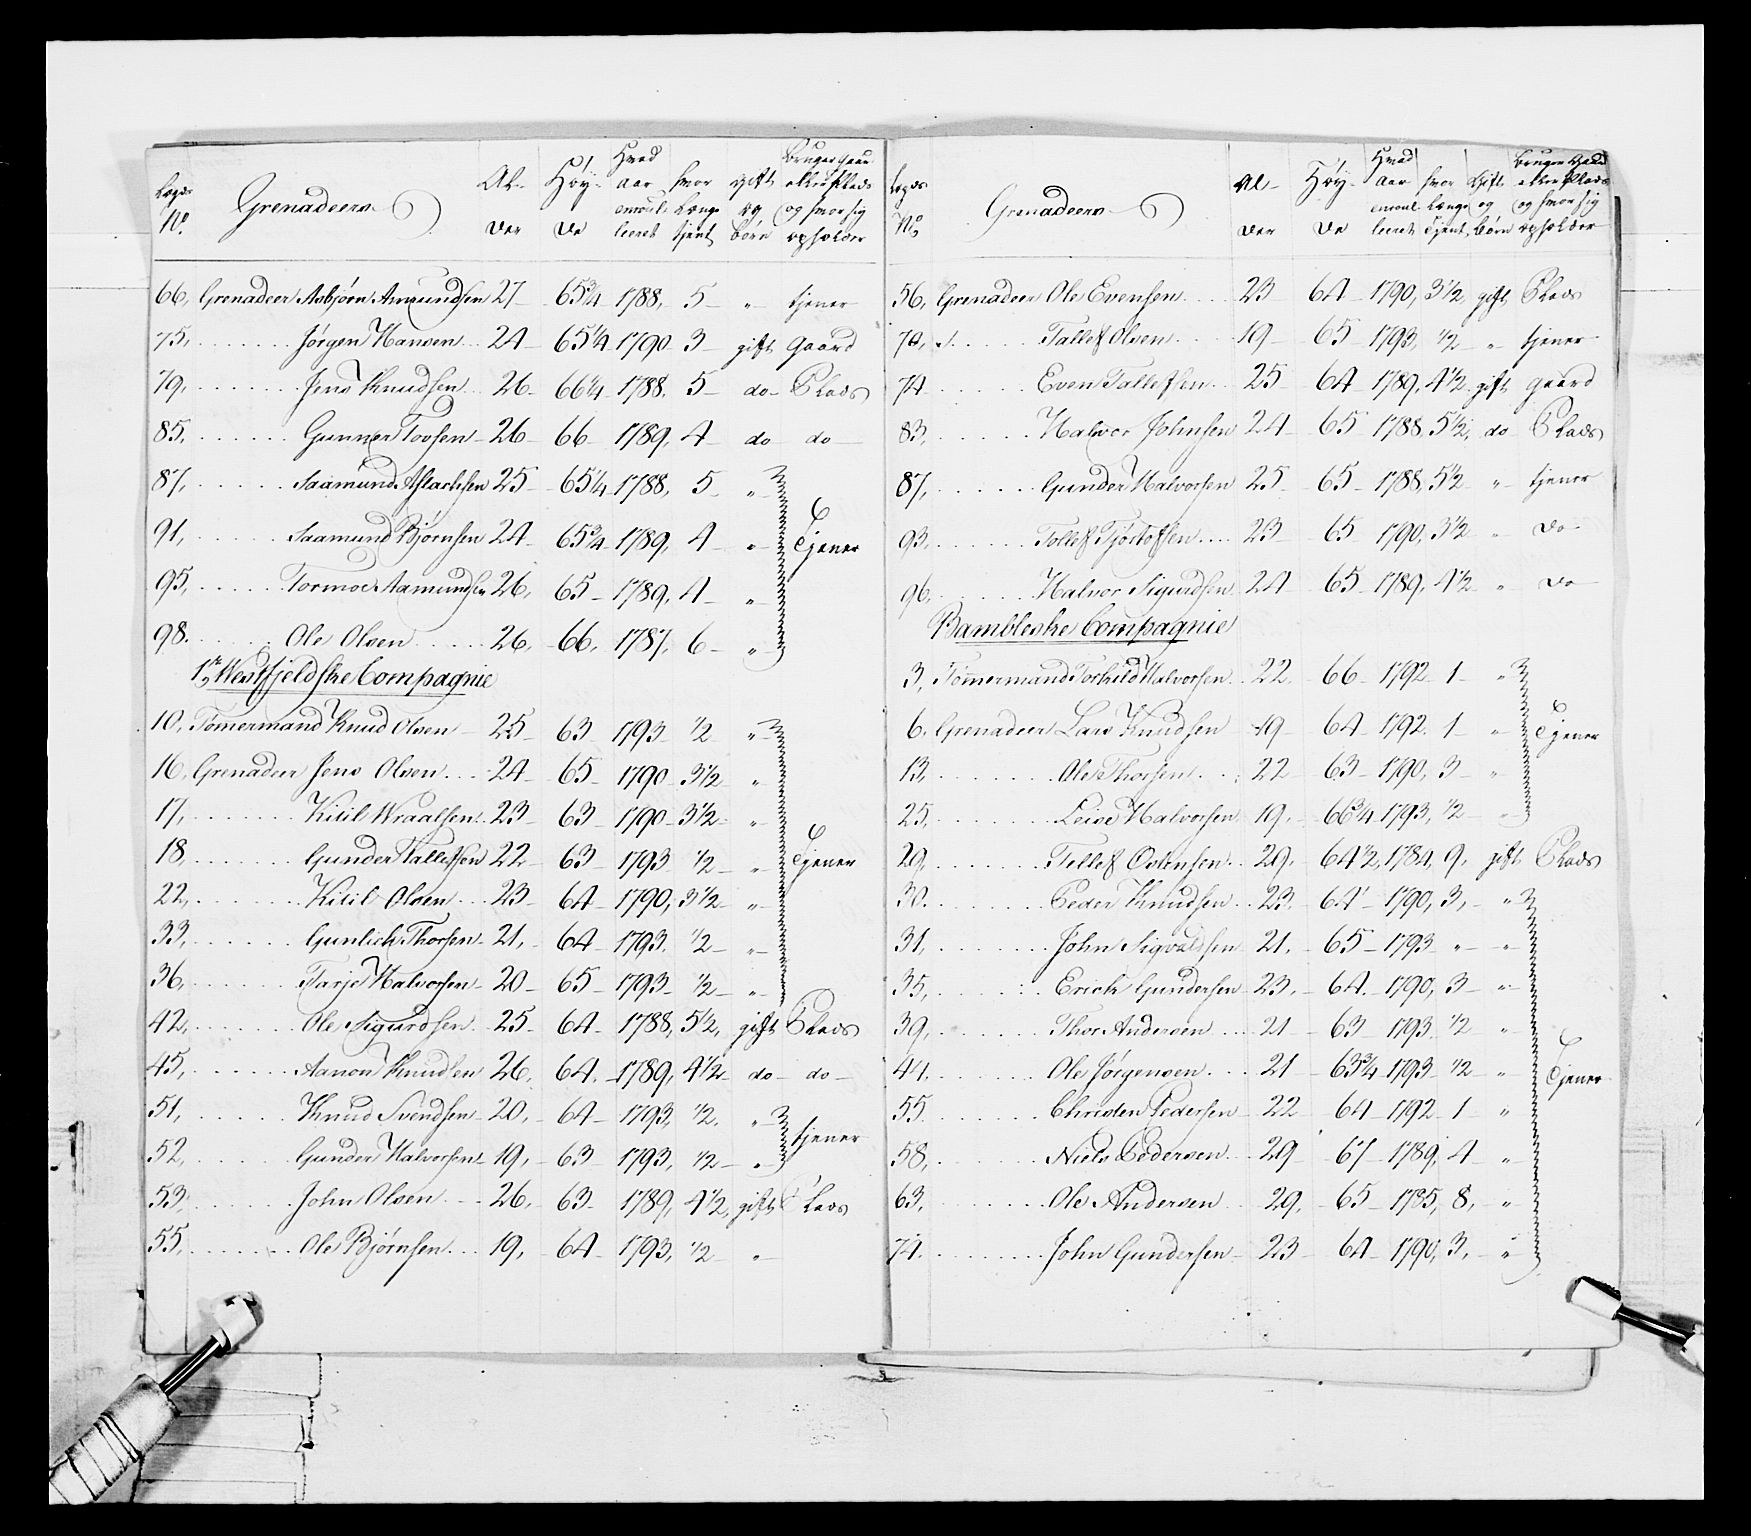 Legds No. Grenadeers Al- der Høy- de Hvad aar enroul- leeret hvor længe tjent gift og børn bruger gaard eller Plads og hvor sig opholder
66, Grenadeer Asbjørn Amundsen 27 65¾ 1788, 5 " tjener
75, Jørgen Hansen 24 65¼ 1790 3 gift gaard
79, Jens Knudsen 26 66¼ 1788, 5 do Plads
85, Gunner Tovsen 26 66 1789, 4 do do
87, Saamund Aslachsen 25 65¼ 1788, 5 "
91, Saamund Bjørnsen 24 65¾ 1789, 4 " Tjener
95, Tormod Aamundsen 26, 65 1789, 4 "
98. Ole Olsen 26, 66, 1787, 6 "
1te Westfjeldske Compagnie
10, Tømermand Knud Olsen 25 63 1793 ½ "
16, Grenadeer Jens Olsen 24 65 1790 3½ "
17, Kitil Wraalsen 23 63 1790 3½ "
18, Gunder Tallefsen 22 63 1793 ½ " Tjener
22, Kitil Olsen 23 64 1790, 3½ "
33, Gunlich Thorsen 21, 64 1793, ½ "
36, Tarje Halvorsen 20 65 1793 ½ "
42, Ole Sigurdsen 25 64 1788, 5½, gift Plads
45, Aanon Knudsen 26, 64, 1789, 4½ do do
51, Knud Svendsen 20, 64 1793, ½, "
52, Gunder Halvorsen 19, 63 1793, ½ " tjener
53, John Olsen 26, 63 1789, 4½, gift Plads
55, Ole Bjørnsen 19, 64 1793, ½ "
Legds No. Grenadeers Al- der Høy- de Hvad aar enroul- leeret hvor længe tjent Gift og børn bruger Gaard eller Plads og hvor sig opholder
56, Grenadeer Ole Evensen 23 64 1790, 3½, gift Plads
70, Tallef Olsen 19 65 1793, ½ " tjener
74 Even Tallefsen 25 64 1789, 4½ gift gaard
83, Halvor Johnsen 24 65 1788, 5½, do Plads
87, Gunder Halvorsen 25 65 1788, 5½ " tjener
93, Tollef Tjøstofsen 23 65 1790, 3½ " do
96, Halvor Sigurdsen 24 65 1789, 4½ " do
Bambleske Compagnie
3, Tømmermand Torkild Halvorsen 22 66 1792 1 "
6, Grenadeer Lars Knudsen 19 64 1792, 1 " Tjener
13, Ole Thorsen 22 63 1790, 3 "
25, Leive Halvorsen 19, 66¾ 1793, ½ "
29, Tellef Ostensen 29, 64½, 1784, 9, gift Plads
30. Peder Knudsen 23 64 1790, 3, "
31, John Sigvaldsen 21, 65 1793 " "
35, Erich Gundersen 23, 64 1790, 3 "
39, Thor Andersen 21 63 1793 ½ "
44. Ole Jørgensen 21 63¾ 1793 ½ " Tjener
55. Christen Pedersen 22 64 1792 1 "
58, Niels Pedersen 29 67 1789, 4 "
63, Ole Andersen 29, 65 1785, 8, "
74. John Gundersen 23 64 1790, 3, "